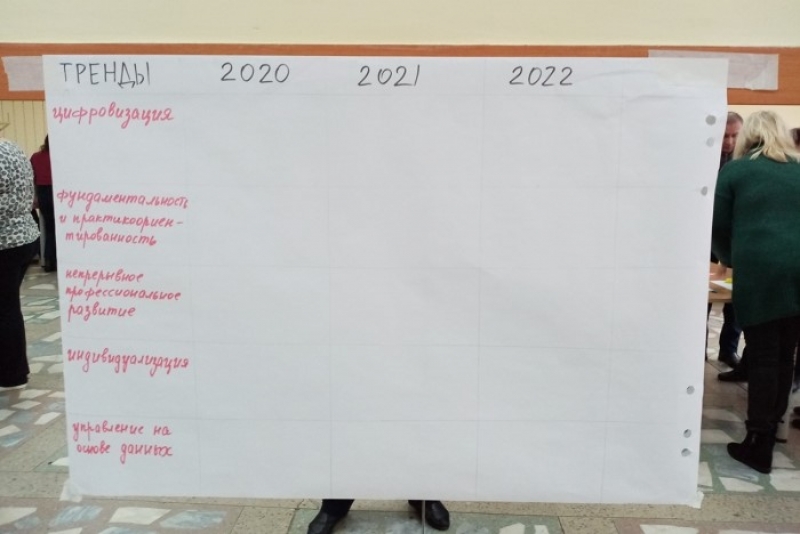 ТРЕНДЫ 2020 2021 2022
цифровизация
фундаментальность
и практикоориен-
тированность
непрерывное
профессиональное
развитие
индивидуализация
управление на
основе данных